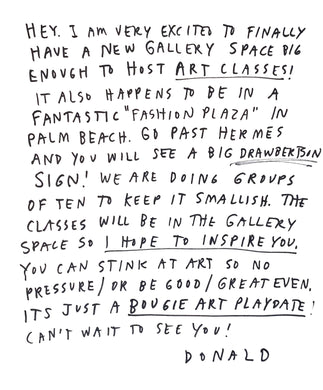 HEY. I AM VERY EXCITED TO FINALLY
HAVE A NEW GALLERY SPACE BIG
ENOUGH TO HOST ART CLASSES!
IT ALSO HAPPENS TO BE IN A
FANTASTIC "FASHION PLAZA" IN
PALM BEACH. GO PAST HERMES
AND YOU WILL SEE A BIG DRAWBERTSON
SIGN! WE ARE DOING GROUPS
OF TEN TO KEEP IT SMALLISH. THE
CLASSES WILL BE IN THE GALLERY
SPACE SO I HOPE TO INSPIRE YOU.
YOU CAN STINK AT ART SO NO
PRESSURE/OR BE GOOD/GREAT EVEN.
ITS JUST A BOUGIE ART PLAYDATE!
CAN'T WAIT TO SEE YOU!
DONALD